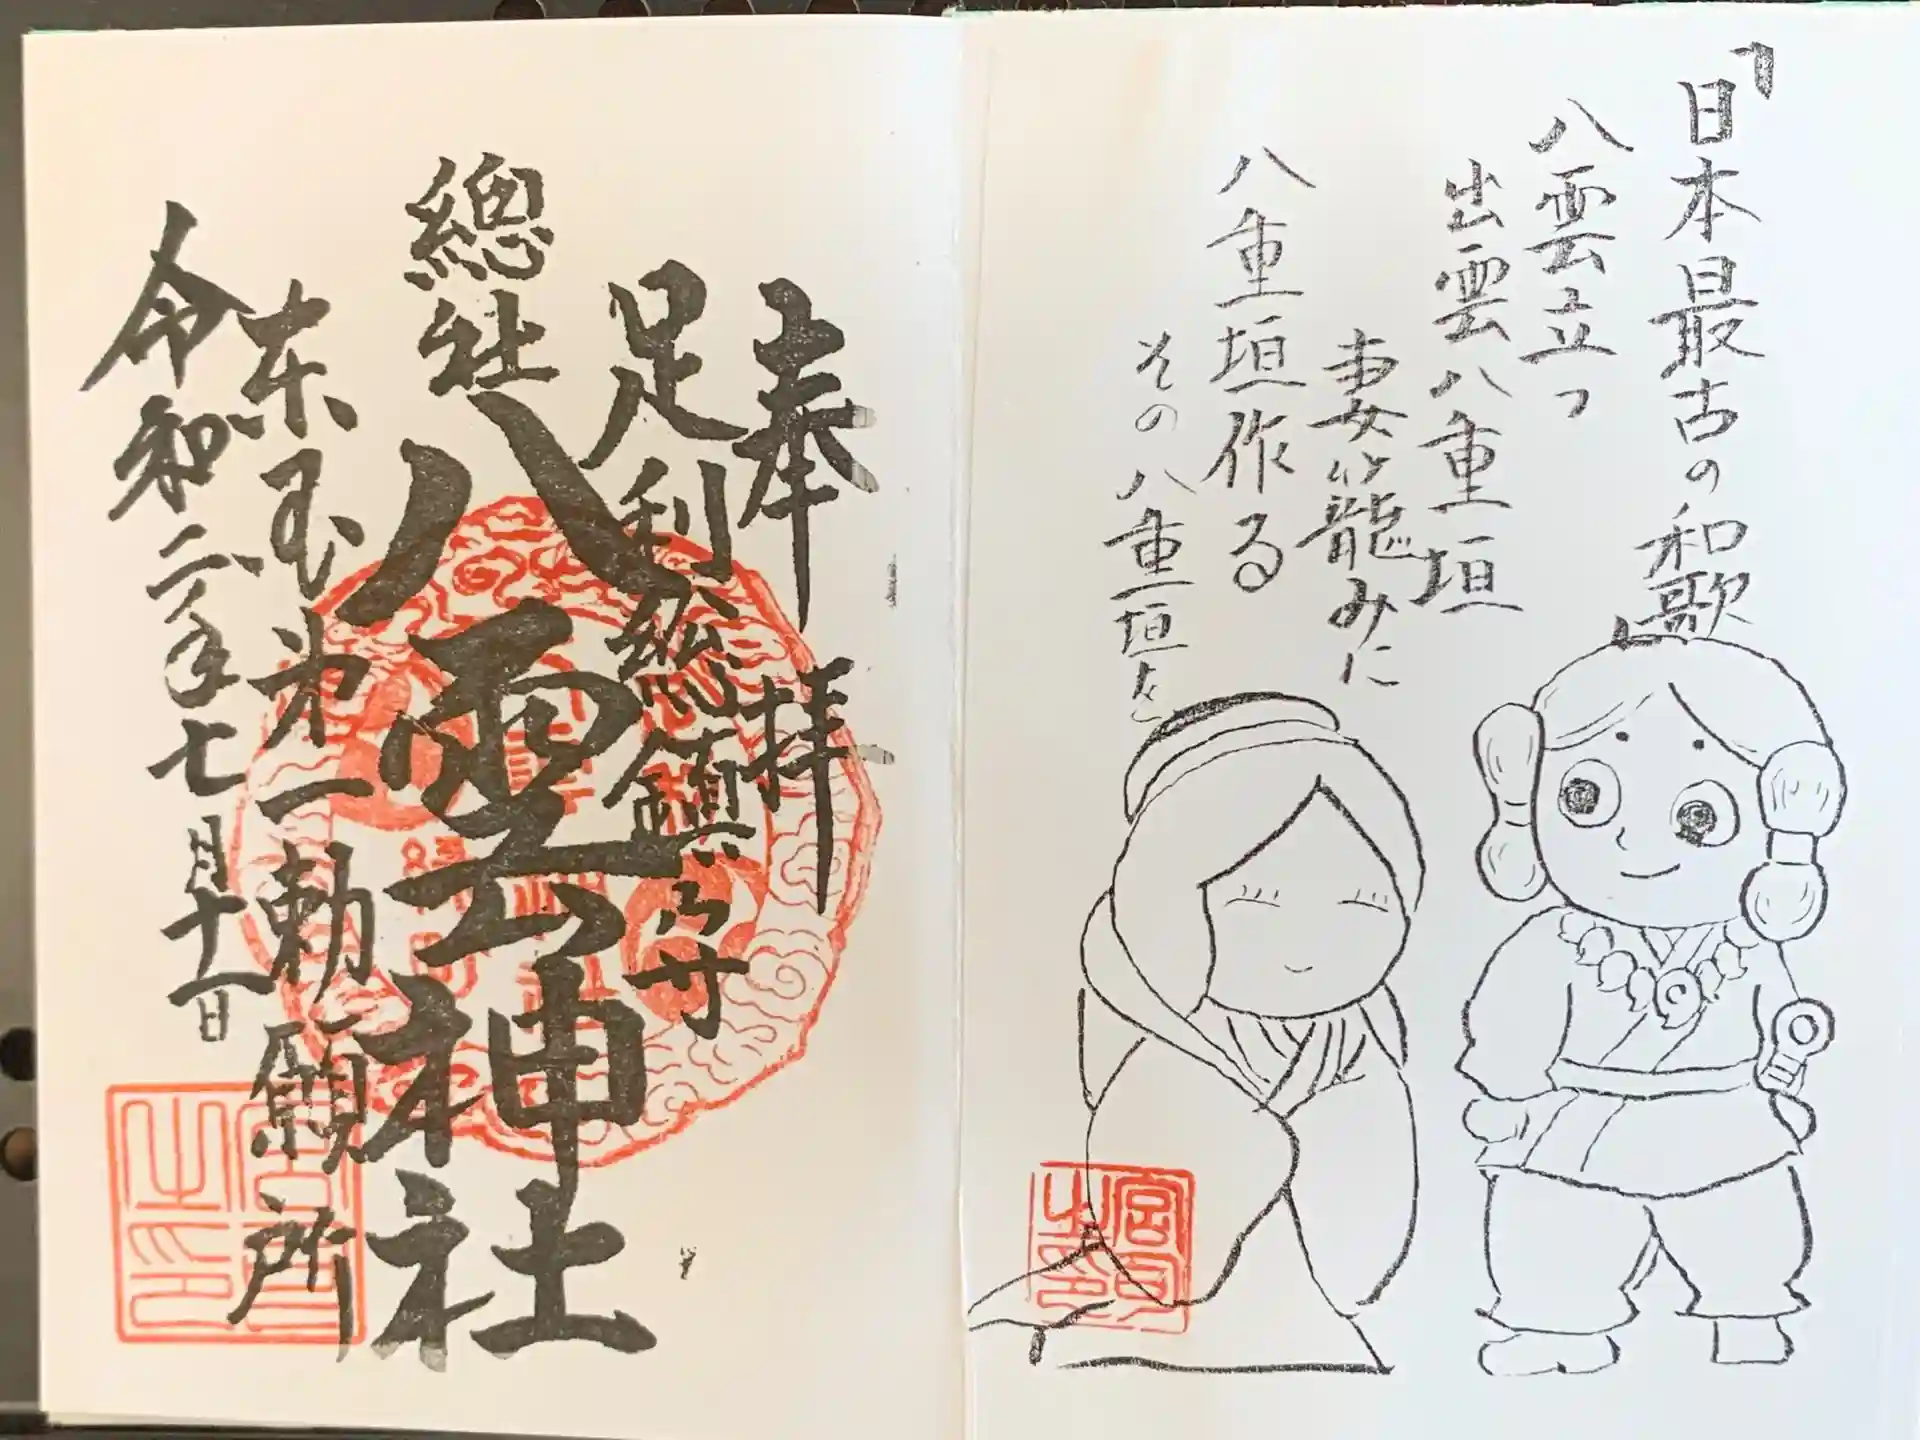 「日本最古の和歌」
八雲立つ
出雲八重垣
妻籠みに
八重垣作る
その八重垣を
宮司之印
奉拝
足利総鎮守
總社
八雲神社
東国第一勅願所
令和二年七月十一日